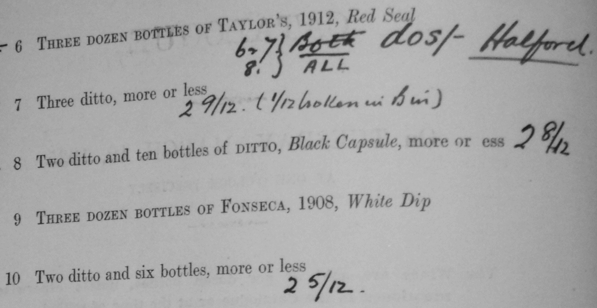 6 THREE DOZEN BOTTLES OF TAYLOR'S, 1912, Red Seal
6-7 } Both dos/- Halford.
8. } ALL
7 Three ditto, more or less
2 9/12. (1/12 broken in Bin)
8 Two ditto and ten bottles of DITTO, Black Capsule, more or ess 2 8/12
9 THREE DOZEN BOTTLES OF FONSECA, 1908, White Dip
10 Two ditto and six bottles, more or less
2 5/12.